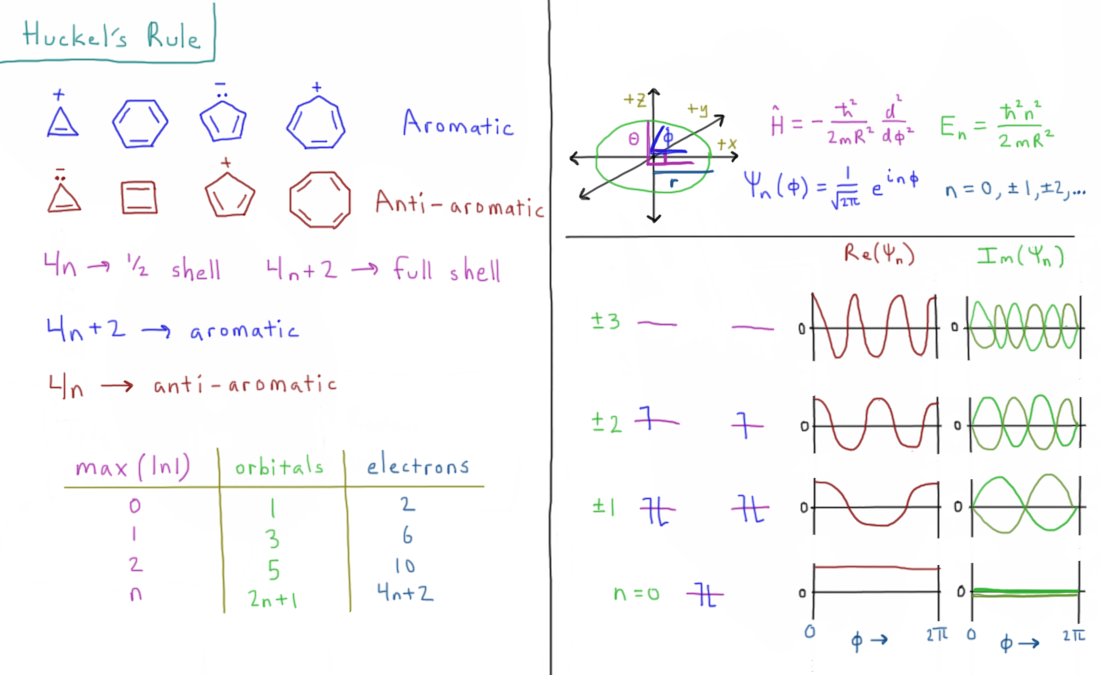 Huckel's Rule
+ :̄ +
Aromatic
:̄ +
Anti-aromatic
4n → ½ shell 4n+2 → full shell
4n+2 → aromatic
4n → anti-aromatic
max(|n|) orbitals electrons
0 1 2
1 3 6
2 5 10
n 2n+1 4n+2
+z +y +x
θ ϕ r
Ĥ = -ħ²/2mR² d²/dϕ²
Eₙ = ħ²n²/2mR²
Ψₙ(ϕ) = 1/√2π e^inϕ
n = 0, ±1, ±2, ...
Re(Ψₙ) Im(Ψₙ)
±3 0 0
±2 0 0
±1 0 0
n=0 0 0
0 ϕ→ 2π 0 ϕ→ 2π